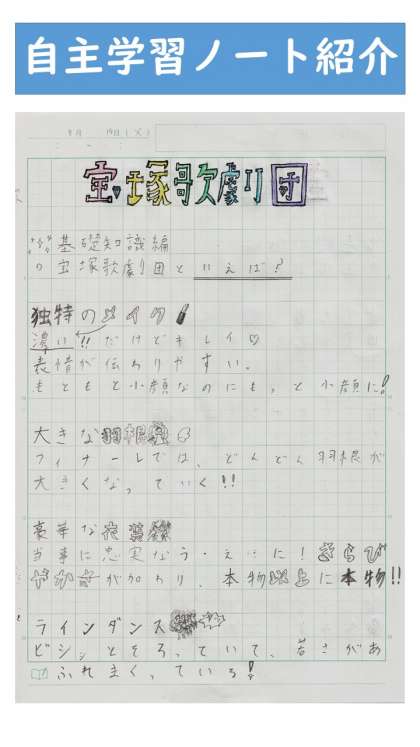 自主学習ノート紹介
9月 19日(火)
宝塚歌劇団
基礎知識編
宝塚歌劇団といえば?
独特のメイク
濃い!!だけどキレイ♡
表情が伝わりやすい。
もともと小顔なのにもっと小顔に!
大きな羽根
フィナーレでは、どんどん羽根が
大きくなっていく!!
豪華な衣装
当事に忠実なうえに!きらび
やかさが加わり、本物以上に本物!!
ラインダンス
ビシッとそろっていて、若さがあ
ふれまくっている!